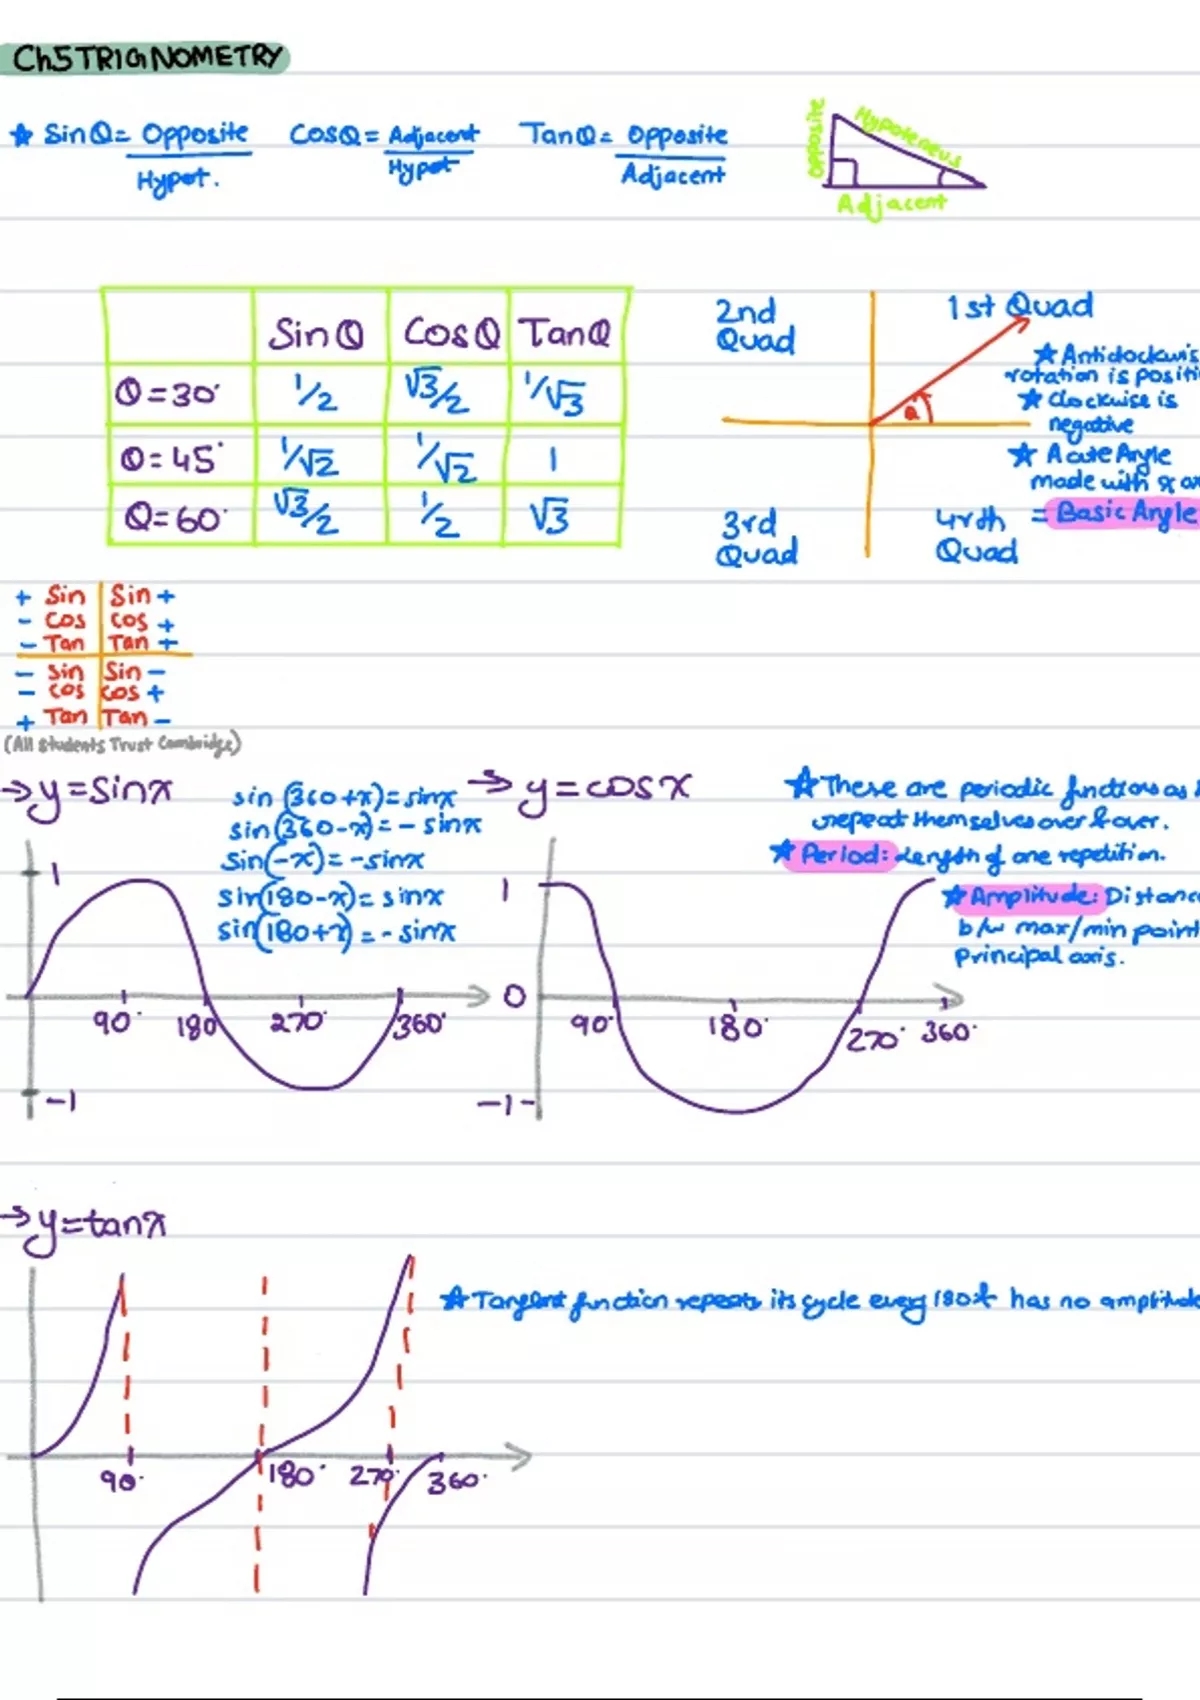 Ch5 TRIGNOMETRY
★ Sinθ = Opposite / Hypot. Cosθ = Adjacent / Hypot Tanθ = Opposite / Adjacent
Opposite
Hypoteneus
Adjacent
Sinθ Cosθ Tanθ
θ=30° 1/2 √3/2 1/√3
θ=45° 1/√2 1/√2 1
θ=60° √3/2 1/2 √3
2nd Quad
1st Quad
3rd Quad
4rth Quad
a
★ Anticlockwis
rotation is positi
★ Clockwise is
negative
★ Acute Angle
made with x ax
= Basic Angle
+ Sin Sin +
- Cos Cos +
- Tan Tan +
- Sin Sin -
- Cos Cos +
+ Tan Tan -
(All Students Trust Cambridge)
→ y=sinx
sin(360+x)=sinx
sin(360-x)=-sinx
sin(-x)=-sinx
sin(180-x)=sinx
sin(180+x)=-sinx
1
90° 180 270° 360°
-1
→ y=cosx
1
0
90° 180° 270° 360°
-1-
★ These are periodic functions as
repeat themselves over & over.
★ Period: Length of one repetition.
★ Amplitude: Distance
b/w max/min point
principal axis.
→ y=tanx
90° 180° 270° 360°
★ Tangent function repeats its cycle every 180 & has no amplitude